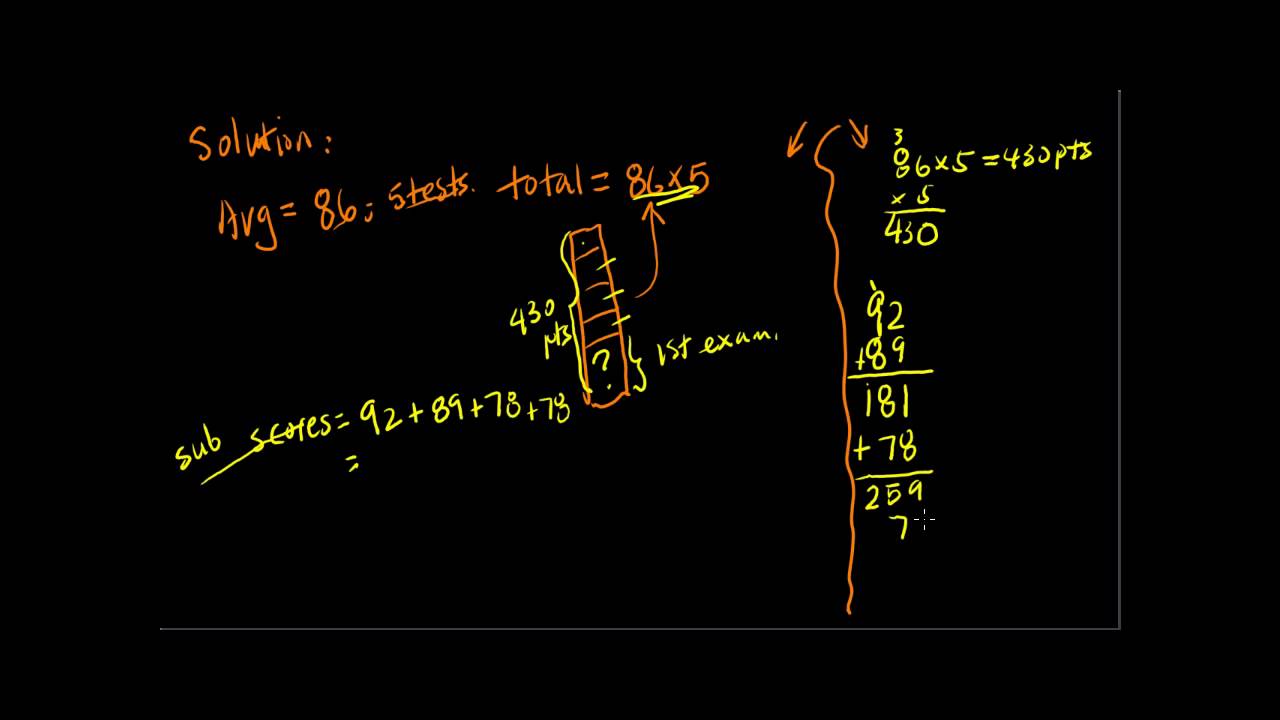 Solution:
Avg = 86; 5 tests. total = 86×5
430
pts
?
1st exam.
sub scores = 92+89+78+78
=
3
86×5=430pts
×5
430
1
92
+89
181
+78
259
7